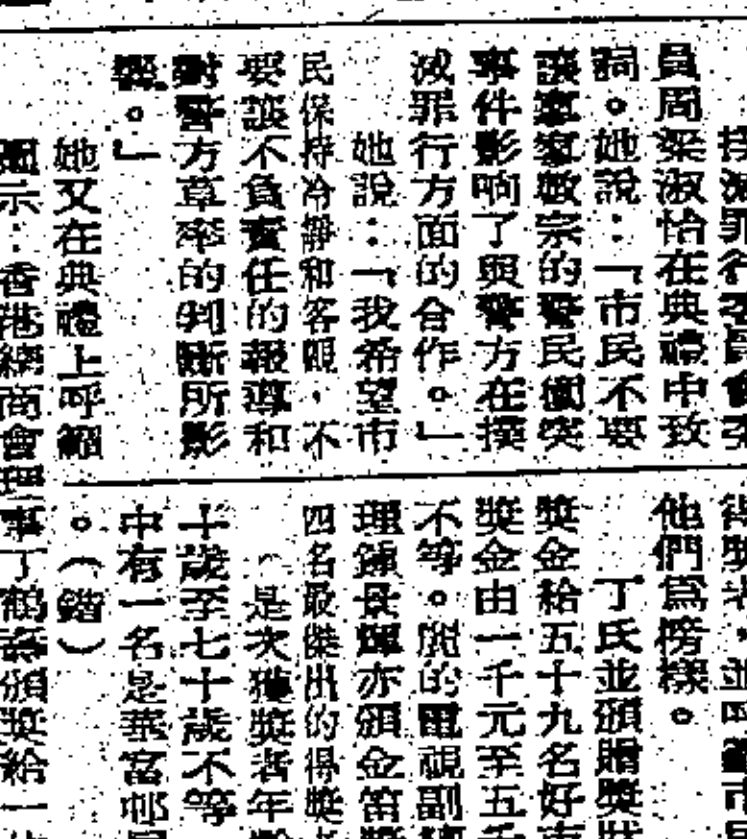 撲滅罪行委員會委
員周梁淑怡在典禮中致
詞。她說：「市民不要
讓 敏宗的警民衝突
事件影响了與警方在撲
滅罪行方面的合作。」
她說：「我希望市
民保持冷靜和客觀，不
要讓不負責任的報導和
對警方草率的判斷所影
響。」
她又在典禮上呼籲
：香港總商會理
得獎者，並呼籲市民
他們爲榜樣。
丁氏並頒贈獎狀
獎金給五十九名好市
獎金由一千元至五千
不等。 的電視副總
理鍾景輝亦頒金笛獎
四名最傑出的得獎
（是次獲獎者年齡
十歲至七十歲不等
中有一名是華富邨居
。（鍇）
事丁鶴壽頒獎給一